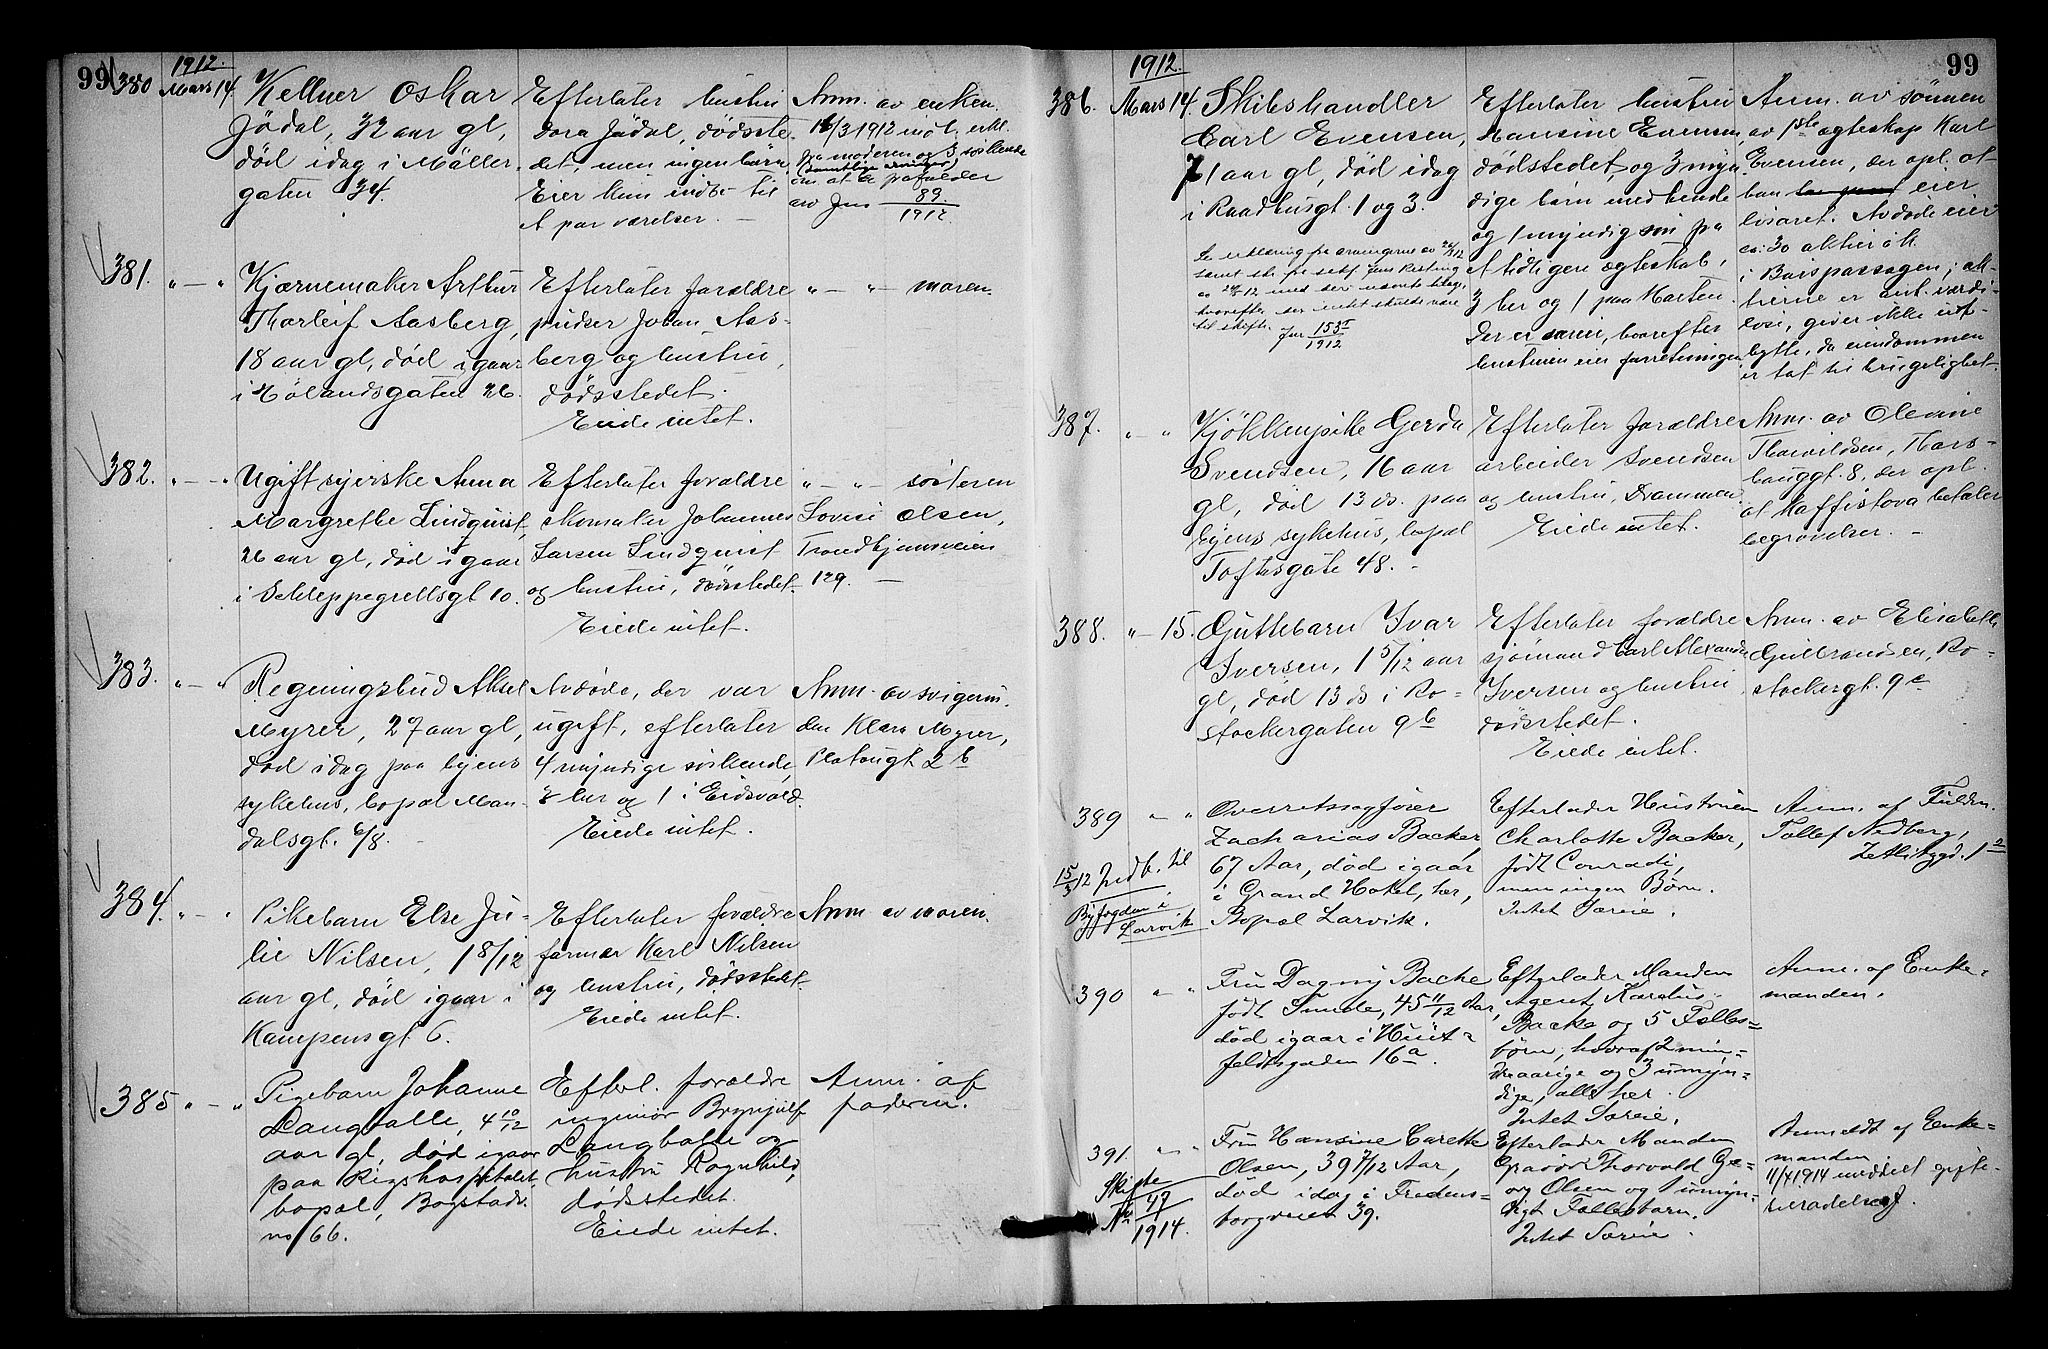 99
1912.
380 Mars 14.
Kellner Oskar
Jödal, 32 aar gl,
död idag i Möller
gaten 34.
Efterlater hustru
Dora Jödal, dödsste-
det, men ingen börn.
Eier kun indbo til
et par værelser. –
Anm. av enken.
16/3 1912 indl. erkl.
fra moderen og 3 söskende
(samtlige arvinger)
om at
av Jnr 89
1912
381. " — "
Kjærnemaker Arthur
Thorleif Aasberg,
18 aar gl, död igaar
i Hölandsgaten 26.
Efterlater forældre
pudser Johan Aas-
berg og hustru,
dödsstedet.
Eiede intet.
" — " moren.
382. " — "
Ugift syerske Anna
Margrethe Lindquist,
26 aar gl, död igaar
i Schleppegrellsgt 10.
Efterlater forældre
skomaker Johannes
Larsen Lindquist
og hustru, dödsstedet.
Eiede intet.
" — " söstrren
Lovise Olsen,
Trondhjemsveien
129. —
383. " — "
Regningsbud Aksel
Myrer, 27 aar gl,
död idag paa byens
sykehus, bopæl Man-
dalsgt. 6/8.
Avdöde, der var
ugift, efterlater
4 myndige söskende,
3 her og 1 i Eidsvold.
Eiede intet.
Anm. av svigerin-
den Klara Myrer,
Platougt 2 b
384. " — "
Pikebarn Else Ju-
lie Nilsen, 1 8/12
aar gl, död igaar i
Kampensgt 6.
Efterlater forældre
former Karl Nilsen
og hustru, dödsstedet.
Eiede intet.
Anm. av moren.
385 " — "
Pigebarn Johanne
Langballe, 4 10/12
aar gl, död igaar
paa Rigshospitalet
bopæl, Bogstadv.
no 66.
Efterl. forældre
ingeniör Brynjulf
Langballe og
hustru Ragnhild,
dödsstedet.
Eiede intet.
Anm. af
faderen.
99
1912.
386. Mars 14.
Skibshandler
Carl Evensen,
71 aar gl, död idag
i Raadhusgt. 1 og 3.
Se erklæring fra arvingerne av
samt
av
hvorefter der intet skulde være
til skifte. Jnr 153
1912
Efterlater hustru
Hansine Evensen,
dödstedet, og 3 myn-
dige börn med hende
og 1 myndig sön fra
et tidligere ægteskab,
3 her og 1 paa Marten.
Der er særeie, hvorefter
hustruen eier forretningen
Anm. av sönnen
av 1ste ægteskap Karl
Evensen, der opl. at
han eier
lösöret. Avdöde eier
ca: 30 aktier á k.
i Börspassagen; ak-
tierne er ant. værdi-
löse, giver ikke ut-
bytte, da eiendommen
er tat til brugelighet.
387. " "
Kjökkenpike Gerda
Svendsen, 16 aar
gl, död 13 ds. paa
byens sykehus, bopæl
Toftesgate 48. –
Efterlater forældre
arbeider Svendsen
og hustru, Drammen.
Eiede intet.
Anm. av Olevine
Thorvildsen, Thors-
hauggt. 8, der opl.
at Kaffistova betaler
begravelsen. –
388. " — 15.
Guttebarn Ivar
Iversen, 1 5/12 aar
gl, död 13 ds i Ro-
stockergaten 9 b
Efterlater forældre
sjömand Carl Alexander
Iversen og hustru
dödsstedet.
Eiede intet.
Anm. av Elisabeth
Gulbrandsen, Ro-
stockergt. 9 c
389 " "
15/3 12 Indb. til
Byfogden i
Larvik
Overretssagförer
Zacharias Backer,
67 Aar, död igaar
i Grand Hotel, her,
Bopæl Larvik.
Efterlader Hustruen
Charlotte Backer,
födt Conradi,
men ingen Börn.
Intet Særeie.
Anm. af Fuldm.
Tollef Nedberg,
390 " "
Fru Dagny Backe
födt Sunde, 45 11/12 Aar,
död igaar i Huit-
feldtsgaden 16 a.
Efterlader Manden
Agent Karelius
Backe og 5 Fælles-
börn, hvoraf 2 min-
dreaarige og 3 umyn-
dige, alle her.
Intet Særeie.
Anm. af Enke-
manden.
391. " "
Skifte
No 47
1914.
Fru Hansine Carette
Olsen, 39 7/12 Aar,
död idag i Fredens-
borgveiet 39.
Efterlader Manden
Gravör Thorvald Ge-
org Olsen og 1 umyn-
digt Fællesbarn.
Intet Særeie.
Anmeldt af Enke-
manden.
11/4 1914 meddelt gifte-